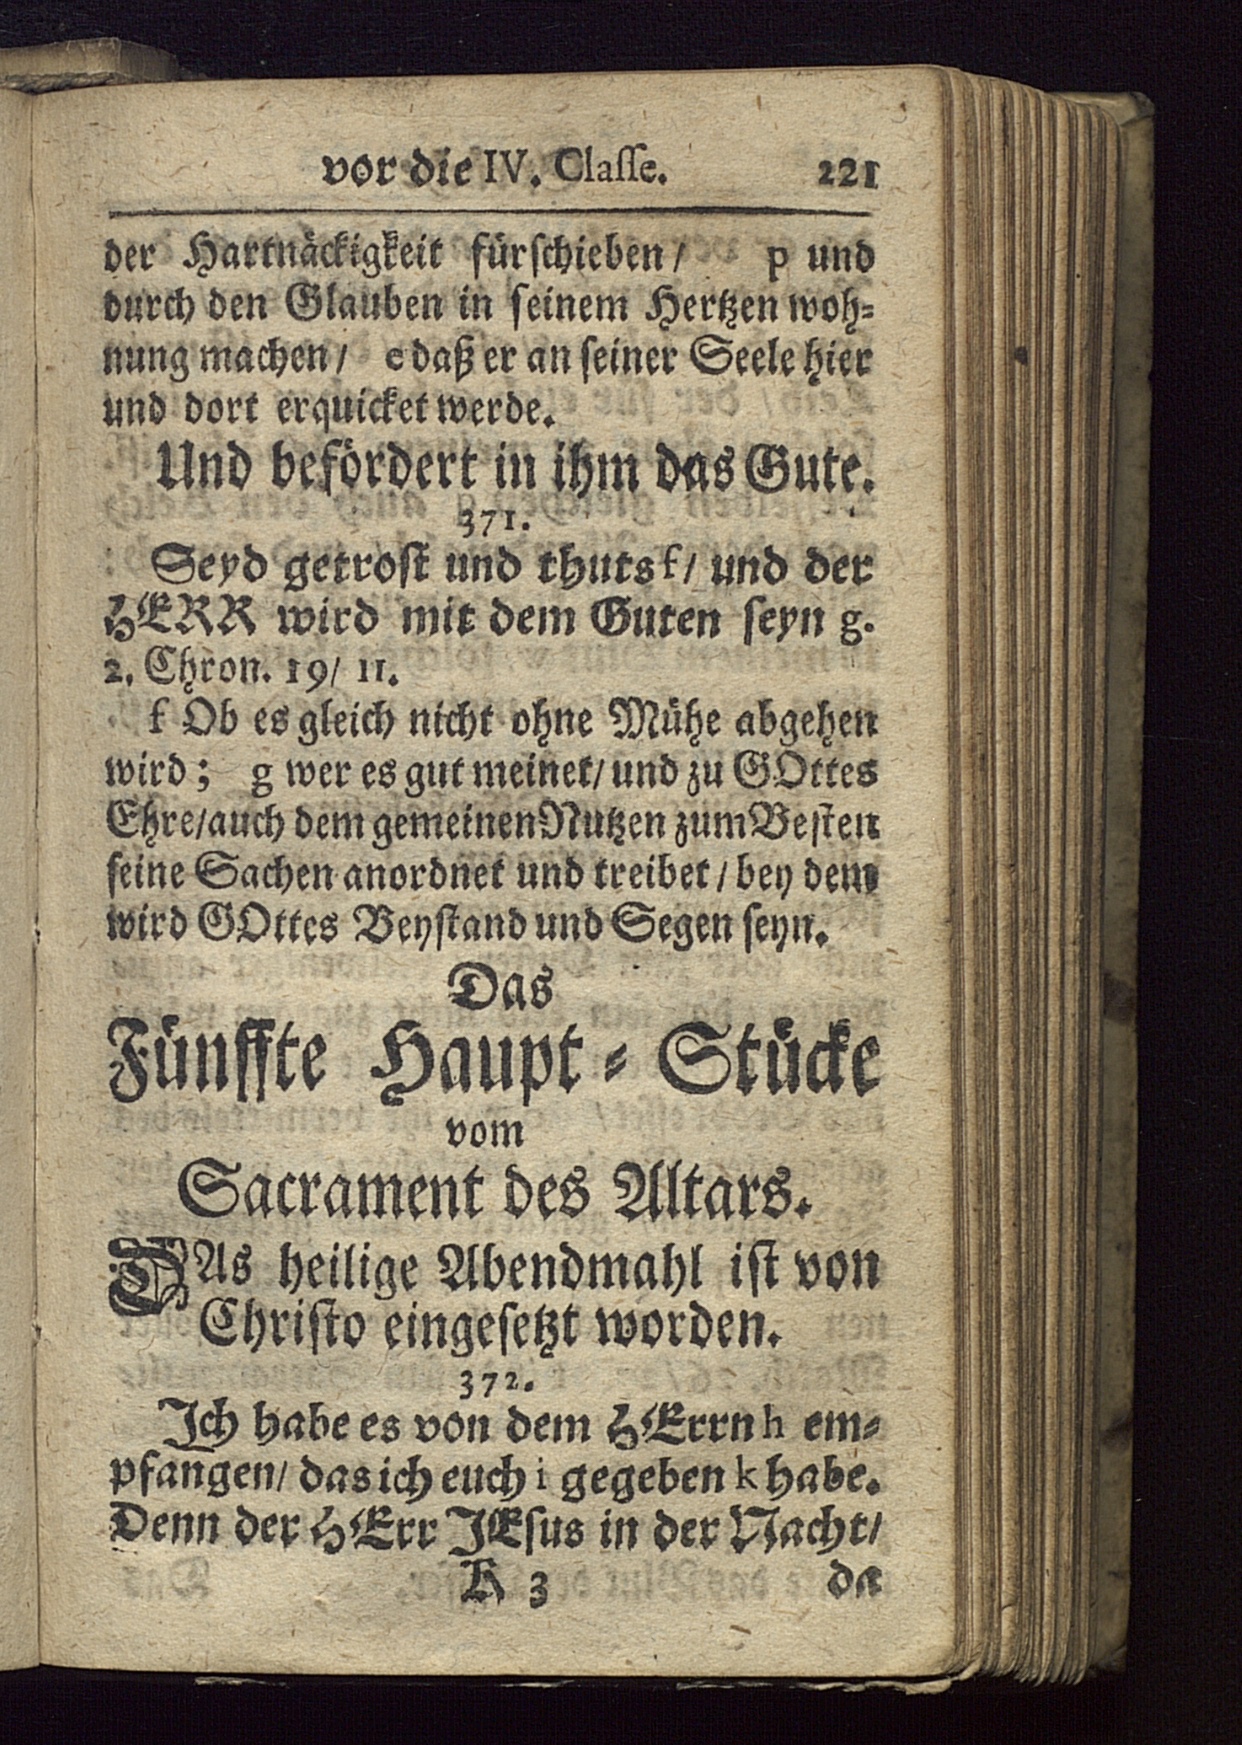 vor die IV. Classe. 221
der Hartnäckigkeit fürschieben/ p und
durch den Glauben in seinem Hertzen woh-
nung machen/ e daß er an seiner Seele hier
und dort erquicket werde.
Und befördert in ihm das Gute.
371.
Seyd getrost und thuts f/ und der
HERR wird mit dem Guten seyn g.
2. Chron. 19/ 11.
f Ob es gleich nicht ohne Mühe abgehen
wird; g wer es gut meinet/ und zu GOttes
Ehre/ auch dem gemeinen Nutzen zum Besten
seine Sachen anordnet und treibet/ bey dem
wird GOttes Beystand und Segen seyn.
Das
Fünffte Haupt-Stücke
vom
Sacrament des Altars.
DAs heilige Abendmahl ist von
Christo eingesetzt worden.
372.
Ich habe es von dem HErrn h em-
pfangen/ das ich euch i gegeben k habe.
Denn der HErr JEsus in der Nacht/
K 3 da